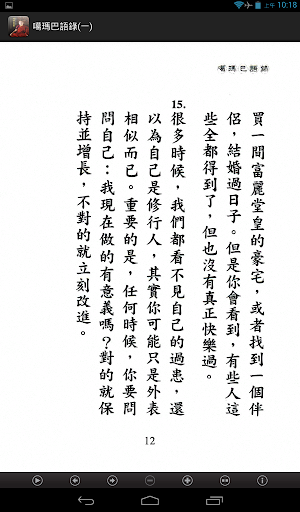 上午 10:18
噶瑪巴語錄(一)
噶瑪巴語錄
買一間富麗堂皇的豪宅，或者找到一個伴
侶，結婚過日子。但是你會看到，有些人這
些全都得到了，但也沒有真正快樂過。
15.
很多時候，我們都看不見自己的過患，還
以為自己是修行人，其實你可能只是外表
相似而已。重要的是，任何時候，你要問
問自己：我現在做的有意義嗎？對的就保
持並增長，不對的就立刻改進。
12